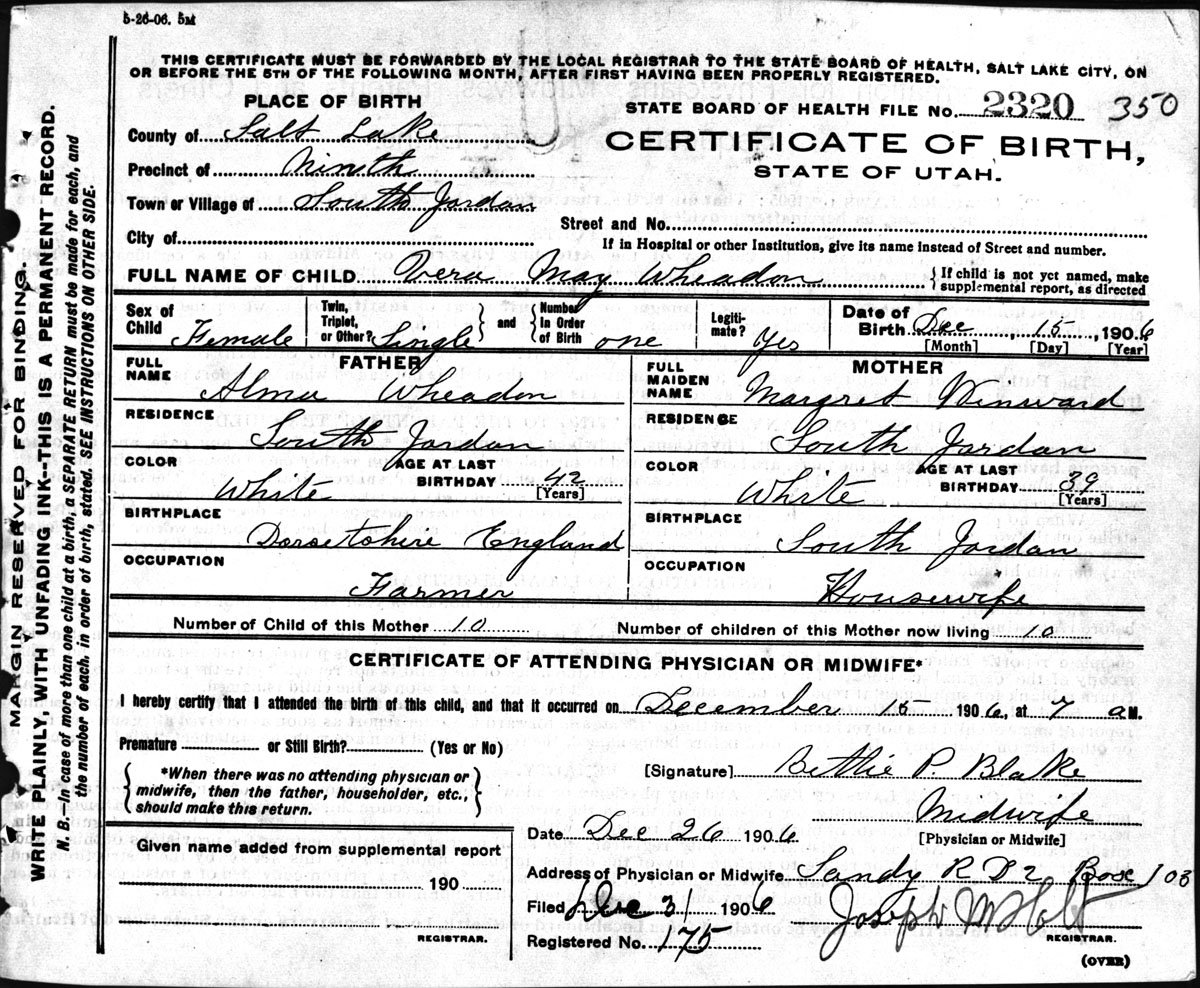 5-26-06. 5M
THIS CERTIFICATE MUST BE FORWARDED BY THE LOCAL REGISTRAR TO THE STATE BOARD OF HEALTH, SALT LAKE CITY, ON
OR BEFORE THE 5TH OF THE FOLLOWING MONTH, AFTER FIRST HAVING BEEN PROPERLY REGISTERED.
PLACE OF BIRTH
STATE BOARD OF HEALTH FILE No. 2320 350
County of Salt Lake
CERTIFICATE OF BIRTH,
STATE OF UTAH.
Precinct of Ninth
Town or Village of South Jordan
Street and No.
City of
If in Hospital or other Institution, give its name instead of Street and number.
FULL NAME OF CHILD Vera May Wheadon { If child is not yet named, make
supplemental report, as directed
Sex of Child Female
Twin, Triplet, or Other? Single } and { Number In Order of Birth one
Legiti-mate? Yes
Date of Birth Dec 15, 1906
[Month] [Day] [Year]
FATHER
FULL NAME Alma Wheadon
RESIDENCE South Jordan
COLOR White AGE AT LAST BIRTHDAY 42
[Years]
BIRTHPLACE Dorsetshire England
OCCUPATION Farmer
MOTHER
FULL MAIDEN NAME Margret Winward
RESIDENCE South Jordan
COLOR White AGE AT LAST BIRTHDAY 39
[Years]
BIRTHPLACE South Jordan
OCCUPATION Housewife
Number of Child of this Mother 10 Number of children of this Mother now living 10
CERTIFICATE OF ATTENDING PHYSICIAN OR MIDWIFE*
I hereby certify that I attended the birth of this child, and that it occurred on December 15 1906, at 7 a M.
Premature or Still Birth? (Yes or No)
{ *When there was no attending physician or
midwife, then the father, householder, etc.,
should make this return. }
[Signature] Bettie P. Blake
Midwife
[Physician or Midwife]
Date Dec 26 1906
Address of Physician or Midwife Sandy R D 2 Box 103
Filed Dec 31 1906 Joseph M Holt
REGISTRAR.
Registered No. 175
(OVER)
Given name added from supplemental report
190
REGISTRAR.
MARGIN RESERVED FOR BINDING.
WRITE PLAINLY WITH UNFADING INK--THIS IS A PERMANENT RECORD.
N. B.—In case of more than one child at a birth, a SEPARATE RETURN must be made for each, and
the number of each, in order of birth, stated. SEE INSTRUCTIONS ON OTHER SIDE.